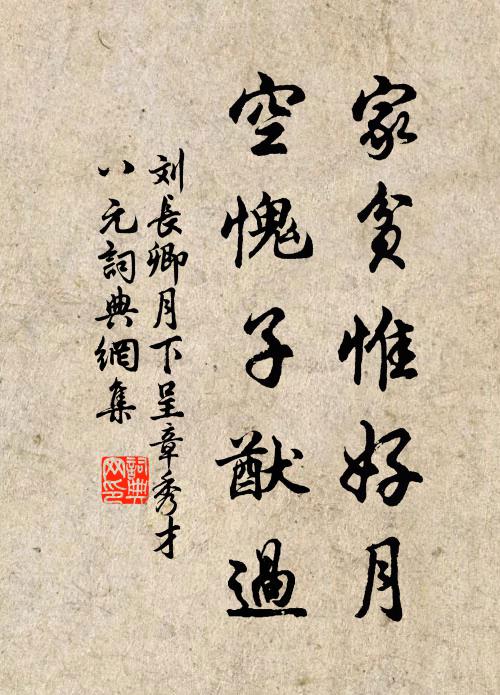 家貧惟好月
空愧子猷過
刘長卿月下呈章秀才
八元詞典網集
詞典
网印